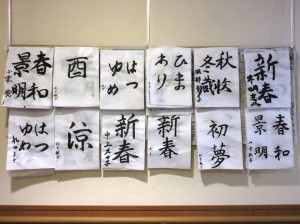 春和
景明
酉
はつ
ゆめ
ひま
あり
秋收
冬蔵
新春
はつ
ゆめ
涼
新春
新春
初夢
春和
景明